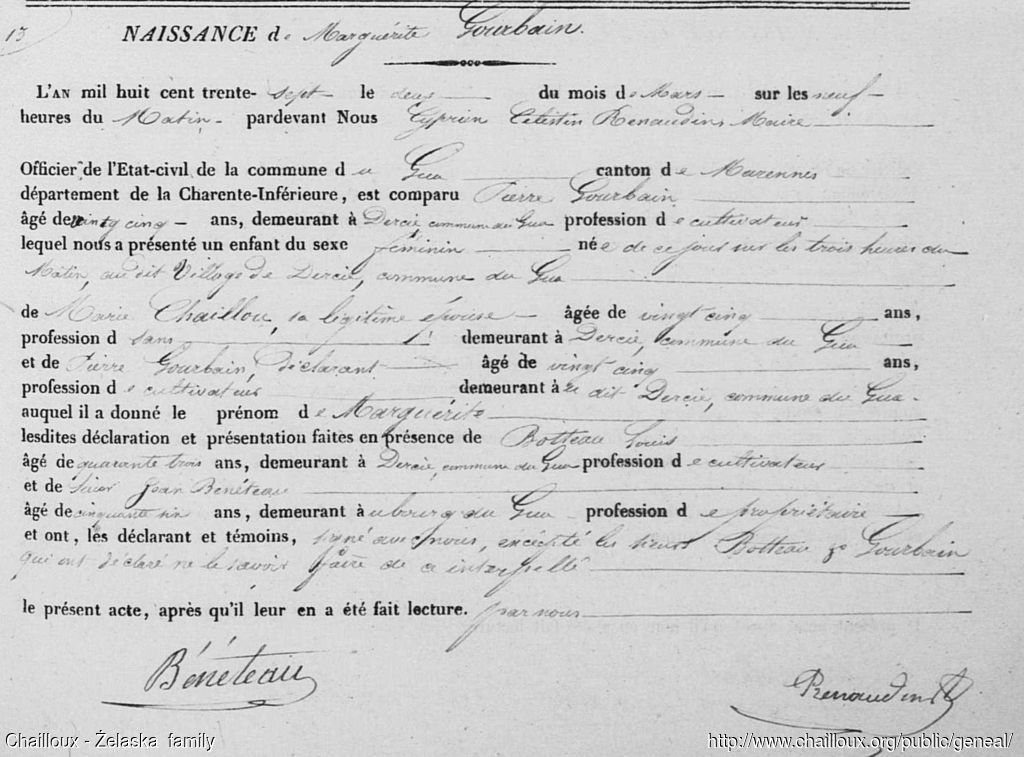 13 NAISSANCE de Marguérite Gourbain.
L'AN mil huit cent trente-sept le deux du mois de Mars sur les neuf
heures du Matin pardevant Nous Cyprien Celestin Renaudin, Maire
Officier de l'Etat-civil de la commune du Gua canton de Marennes
département de la Charente-Inférieure, est comparu Pierre Gourbain,
âgé de vingt cinq ans, demeurant à Dercie, commune du Gua profession de cultivateur
lequel nous a présenté un enfant du sexe féminin née de ce jour sur les trois heures du
Matin, au dit Village de Dercie, commune du Gua
de Marie Chaillou, sa légitime épouse âgée de vingt cinq ans,
profession d sans demeurant à Dercie, commune du Gua
et de Pierre Gourbain, déclarant âgé de vingt cinq ans,
profession de cultivateur demeurant à dit Dercie, commune du Gua.
auquel il a donné le prénom de Marguérite
lesdites déclaration et présentation faites en présence de Botteau Louis
âgé de quarante trois ans, demeurant à Dercie, commune du Gua profession de cultivateur
et de Jean Bénéteau
âgé de cinquante six ans, demeurant au bourg du Gua profession de propriétaire
et ont, les déclarant et témoins, signé avec nous, excepté les sieurs Botteau & Gourbain
qui ont déclaré ne le savoir faire de ce interpellé
le présent acte, après qu'il leur en a été fait lecture. par nous
Bénéteau Renaudin
Chailloux - Żelaska family http://www.chailloux.org/public/geneal/